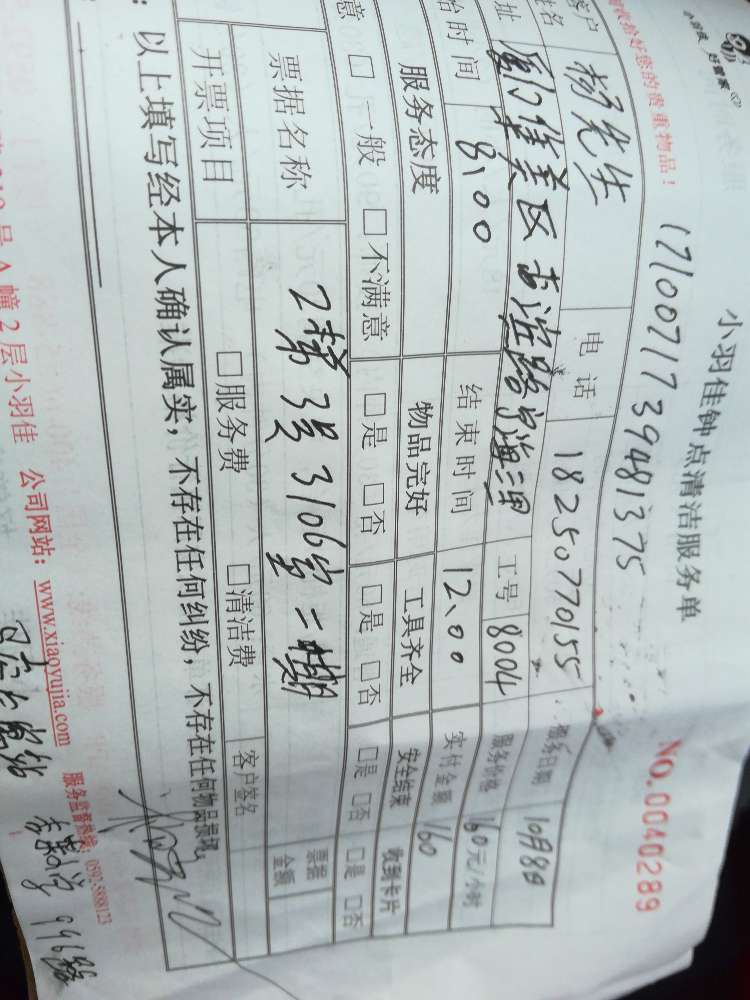 小羽佳 好管家
小羽佳钟点清洁服务单
NO.0040289
收拾好您的贵重物品！
17100717394 81375
客户姓名 杨先生 电话 18250770155 服务日期 10月8日
址 集美区 海 工号 8004 服务价格 160元/小时
始时间 8:00 结束时间 12:00 实付金额 160
服务态度 物品完好 工具齐全 安全结束 收到卡片
意 □一般 □不满意 □是 □否 □是 □否 □是 □否 □是 □否
票据名称 2梯 3号3106室 二期 票据金额
开票项目 □服务费 □清洁费 客户签名
：以上填写经本人确认属实，不存在任何纠纷，不存在任何物品损坏。
号A幢2层小羽佳 公司网站：www.xiaoyujia.com 服务监督热线：0592-5888123
996路